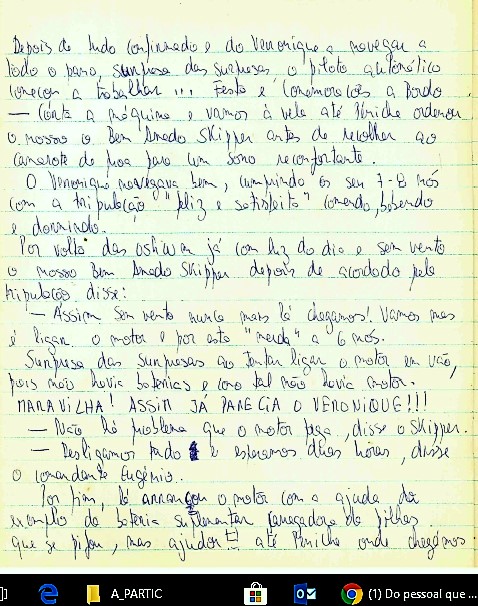 Depois de tudo confirmado e do Veronique a navegar a
todo o pano, surpresa das surpresas, o piloto automático
começou a trabalhar ... Festa e comemorações a Bordo.
— Corta a máquina e vamos à vela até Peniche ordenou
o nosso o Bem Amado Skipper antes de recolher ao
camarote de proa para um sono reconfortante.
O Veronique navegava bem, cumprindo os seu 7-8 nós
com a tripulação "feliz e satisfeita" comendo, bebendo
e dormindo.
Por volta das já com luz do dia e sem vento
o nosso Bem Amado Skipper depois de acordado pela
tripulação disse:
— Assim sem vento nunca mais lá chegamos! Vamos mas
é ligar o motor e por esta "merda" a 6 nós.
Surpresa das surpresas ao tentar ligar o motor em vão,
pois não havia baterias e como tal não havia motor.
MARAVILHA! ASSIM JÁ PARECIA O VERONIQUE!!!
— Não há problema que o motor pega, disse o Skipper.
— Desligamos tudo e esperamos duas horas, disse
o comandante Eugénio.
Por fim, lá arrancou o motor com a ajuda do
exemplo da bateria suplementar carregadora de pilhas
que se pifou, mas ajudou até Peniche onde chegámos
A_PARTIC
(1) Do pessoal que ...